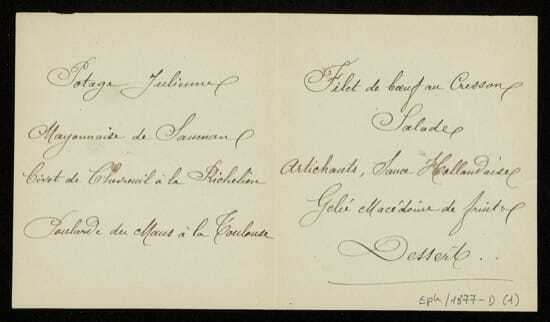 Potage Julienne
Mayonnaise de Saumon
Civet de Chevreuil à la Richelieu
Poularde du Mans à la Toulouse
Filet de bœuf au Cresson
Salade
Artichauts, Sauce Hollandaise
Gelée Macédoine de fruits
Dessert..
Eph/1877-D (1)